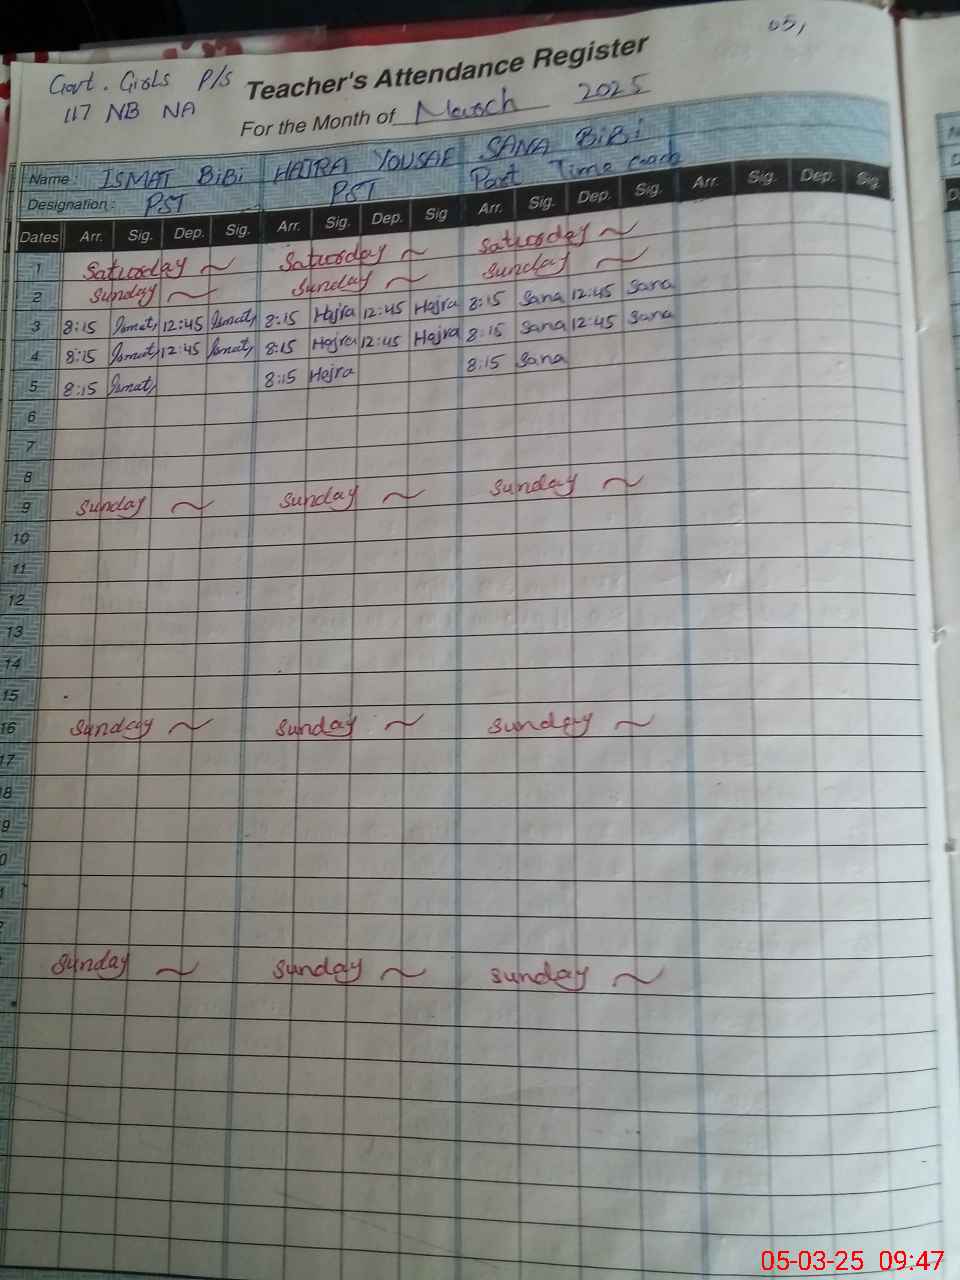 05,
Govt. Girls P/S
117 NB NA
Teacher's Attendance Register
For the Month of March 2025
Name: ISMAT BiBi HAJRA YOUSAF SANA BiBi
Designation: PST PST Part Time coach
Dates Arr. Sig. Dep. Sig. Arr. Sig. Dep. Sig Arr. Sig. Dep. Sig. Arr. Sig. Dep. Sig
1 Saturday ~ Saturday ~ Saturday ~
2 Sunday ~ Sunday ~ Sunday ~
3 8:15 Ismat 12:45 Ismat 8:15 Hajra 12:45 Hajra 8:15 Sana 12:45 Sana
4 8:15 Ismat 12:45 Ismat 8:15 Hajra 12:45 Hajra 8:15 Sana 12:45 Sana
5 8:15 Ismat 8:15 Hajra 8:15 Sana
6
7
8
9 Sunday ~ Sunday ~ Sunday ~
10
11
12
13
14
15
16 Sunday ~ Sunday ~ Sunday ~
17
8
9
0
Sunday ~ Sunday ~ Sunday ~
05-03-25 09:47